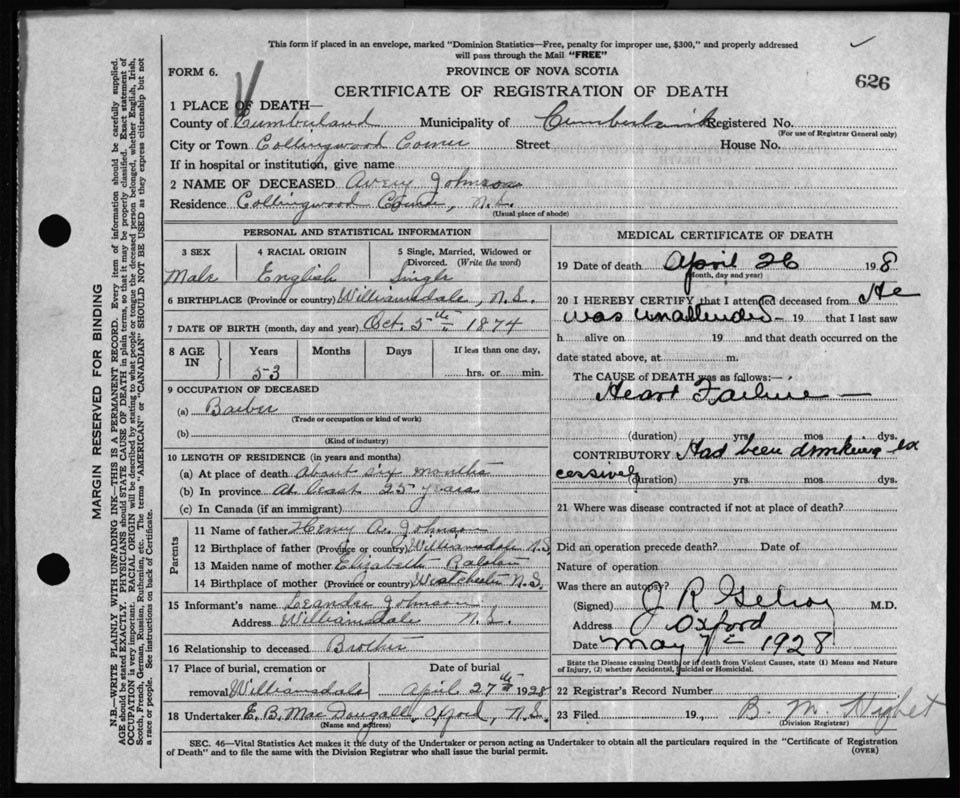 This form if placed in an envelope, marked "Dominion Statistics—Free, penalty for improper use, $300," and properly addressed
will pass through the Mail "FREE"
FORM 6. PROVINCE OF NOVA SCOTIA
626
CERTIFICATE OF REGISTRATION OF DEATH
1 PLACE OF DEATH—
County of Cumberland Municipality of Cumberland Registered No.
(For use of Registrar General only)
City or Town Collingwood Corner Street House No.
If in hospital or institution, give name
2 NAME OF DECEASED Avery Johnson
Residence Collingwood Corner, N.S.
(Usual place of abode)
PERSONAL AND STATISTICAL INFORMATION
3 SEX 4 RACIAL ORIGIN 5 Single, Married, Widowed or
Divorced. (Write the word)
Male English Single
6 BIRTHPLACE (Province or country) Williamsdale, N.S.
7 DATE OF BIRTH (month, day and year) Oct. 5th 1874
8 AGE IN Years Months Days If less than one day,
53 hrs. or min.
9 OCCUPATION OF DECEASED
(a) Barber
(Trade or occupation or kind of work)
(b)
(Kind of industry)
10 LENGTH OF RESIDENCE (in years and months)
(a) At place of death About six months
(b) In province At least 25 years
(c) In Canada (if an immigrant)
Parents
11 Name of father Henry A. Johnson
12 Birthplace of father (Province or country) Williamsdale N.S.
13 Maiden name of mother Elizabeth Ralston
14 Birthplace of mother (Province or country) Westchester N.S.
15 Informant's name Leander Johnson
Address Williamsdale N.S.
16 Relationship to deceased Brother
17 Place of burial, cremation or Date of burial
removal Williamsdale April 27th 1928
18 Undertaker E. B. MacDougall. Oxford, N.S.
(Name and address)
MEDICAL CERTIFICATE OF DEATH
19 Date of death April 26 1928
(Month, day and year)
20 I HEREBY CERTIFY that I attended deceased from He
was unattended 19 that I last saw
h alive on 19 and that death occurred on the
date stated above, at m.
The CAUSE of DEATH was as follows:—
Heart Failure —
(duration) yrs. mos dys.
CONTRIBUTORY Had been drinking ex
cessively (duration) yrs. mos. dys.
21 Where was disease contracted if not at place of death?
Did an operation precede death? Date of
Nature of operation
Was there an autopsy?
(Signed) J R Gilroy M.D.
Address Oxford
Date May 7 1928
State the Disease causing Death, or if death from Violent Causes, state (1) Means and Nature
of Injury, (2) whether Accidental, Suicidal or Homicidal.
22 Registrar's Record Number
23 Filed 19 B. M. Hight
(Division Registrar)
SEC. 46—Vital Statistics Act makes it the duty of the Undertaker or person acting as Undertaker to obtain all the particulars required in the "Certificate of Registration
of Death" and to file the same with the Division Registrar who shall issue the burial permit.
(OVER)
MARGIN RESERVED FOR BINDING
N.B.—WRITE PLAINLY WITH UNFADING INK—THIS IS A PERMANENT RECORD. Every item of information should be carefully supplied.
AGE should be stated EXACTLY. PHYSICIANS should STATE CAUSE OF DEATH in plain terms, so that it may be properly classified. Exact statement of
OCCUPATION is very important. RACIAL ORIGIN will be described by stating to what people or tongue the deceased person belonged, whether English, Irish,
Scotch, French, German, Russian, Ruthenian, etc. The terms "AMERICAN" or "CANADIAN" SHOULD NOT BE USED as they express citizenship but not
a race or people. See instructions on back of Certificate.